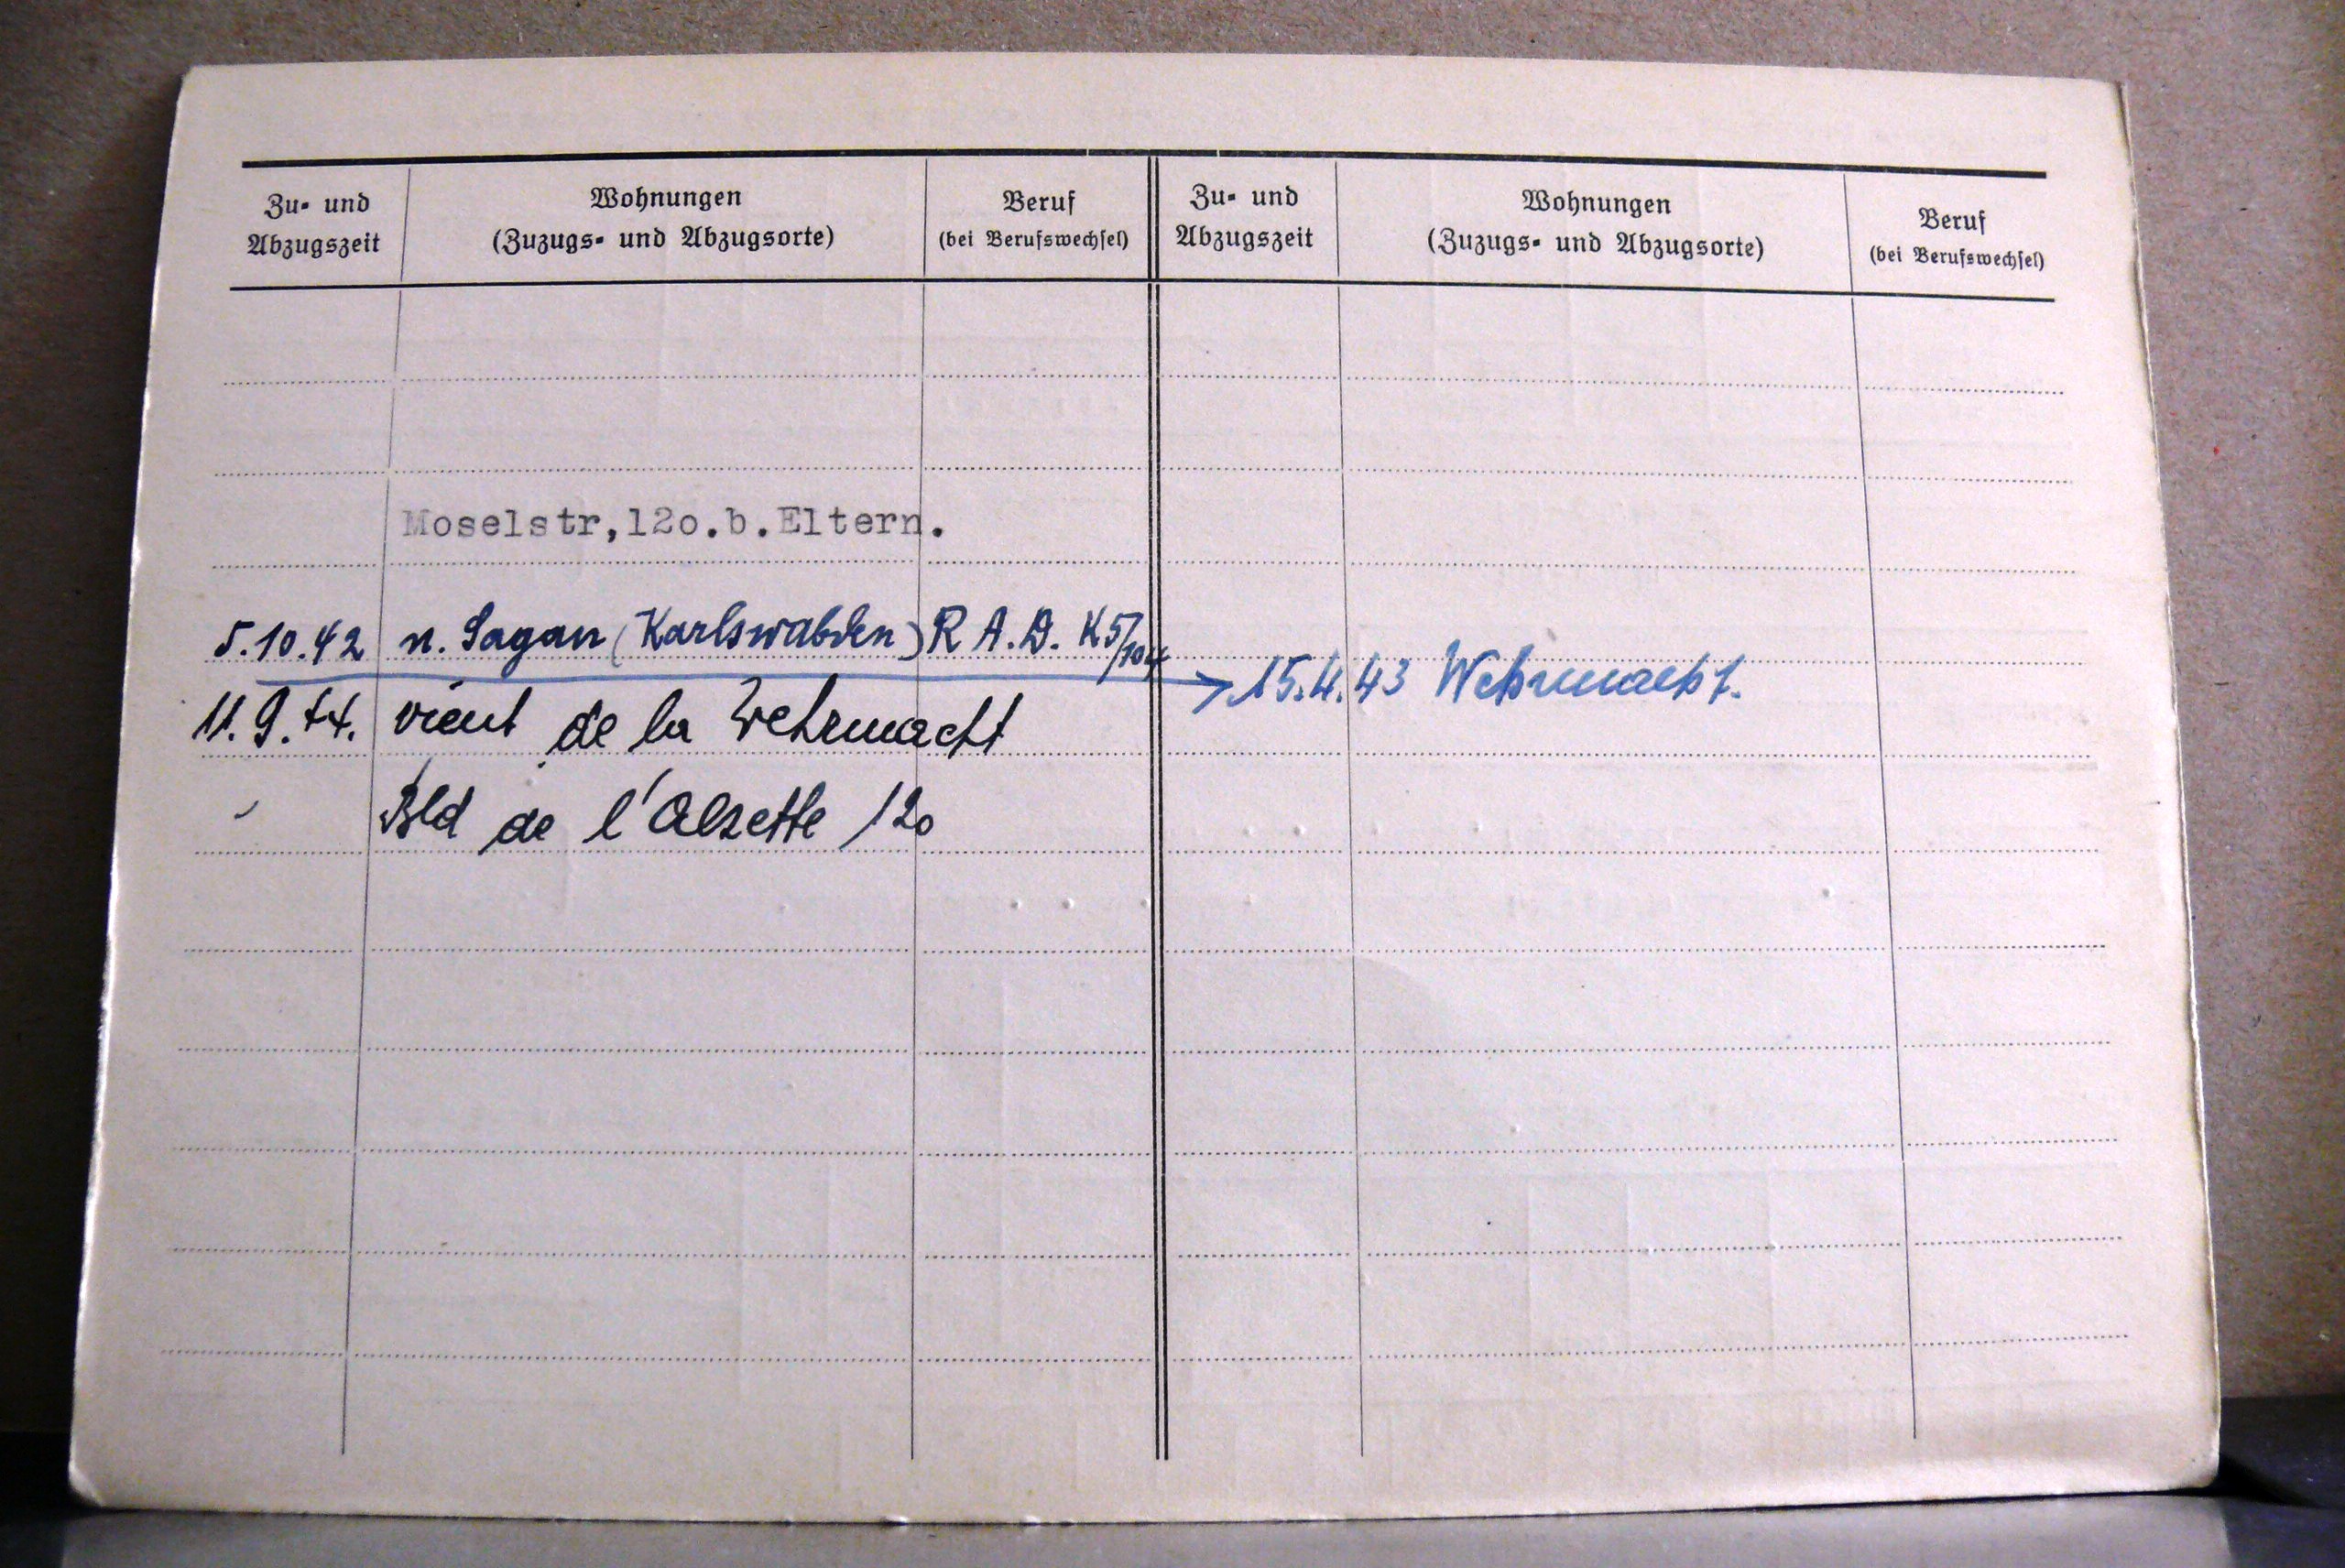 Zu- und Abzugszeit
Wohnungen
(Zuzugs- und Abzugsorte)
Beruf
(bei Berufswechsel)
Zu- und Abzugszeit
Wohnungen
(Zuzugs- und Abzugsorte)
Beruf
(bei Berufswechsel)
Moselstr,12o.b.Eltern.
5.10.42 n. Sagan (Karlswalden) R A.D. K5/104
15.4.43 Wehrmacht.
11.9.44. vient de la Wehrmacht
Bld de l'Alzette 120